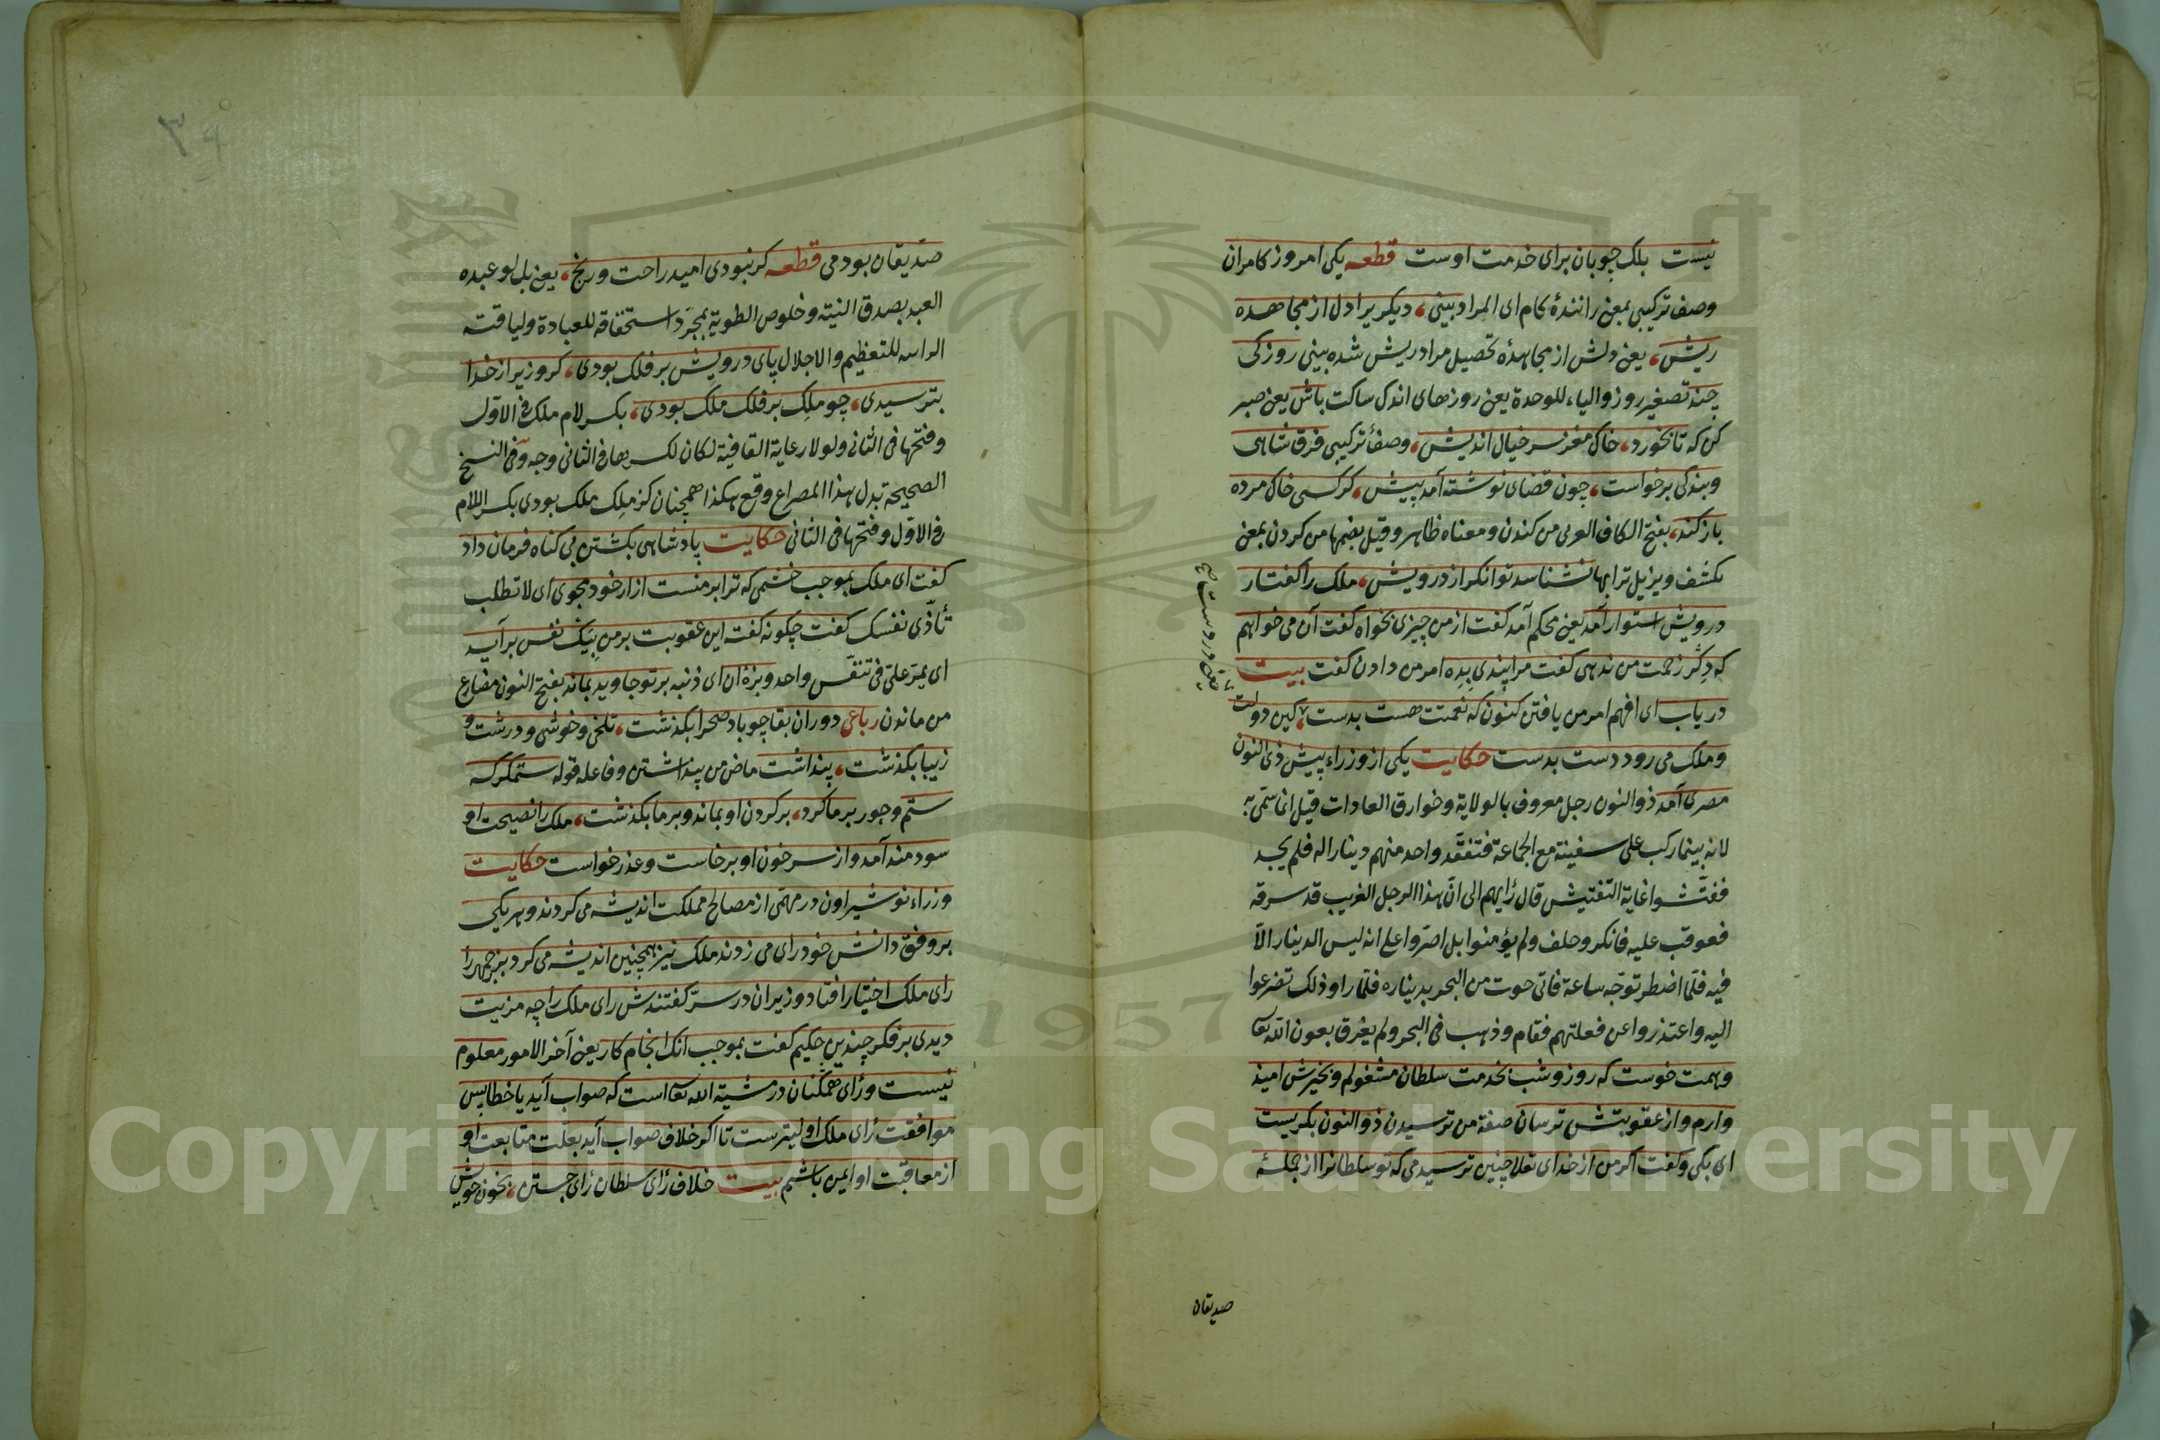 نیست بلک چوبان برای خدمت اوست قطعه یکی امروز کامران
وصف ترکیبی بمعنی رانندۀ کام ای المراد بینی، دیکریرا دل از مجاهده
ریش، یعنی دلش از مجاهدۀ تحصیل مراد ریش شده بینی روزکی
چند تصغیر روز والیاء للوحدة یعنی روزهای اندک ساکت باش یعنی صبر
کن که تا بخورد، خاک مغز سر خیال اندیش، وصف ترکیبی فرق شاهی
وبندکی برخواست، چون قضای نوشته آمد پیش، کر کسی خاک مرده
باز کند، بفتح الکاف العربی من کندن ومعناه ظاهر وقیل بضمها من کردن بمعنی
یکشف ویزیل ترابها نشناسد توانکر از درویش، ملک را کفتار
درویش استوار آمد یعنی محکم آمد کفت از من چیزی بخواه کفت آن می خواهم
که دکر زحمت من ندهی کفت مرا پندی بده امر من دادن کفت بیت
دریاب ای افهم امر من یافتن کنون که نعمتت هست بدست، کین دولت
وملک می رود دست بدست حکایت یکی از وزراء پیش ذی النون
مصری آمد ذو النون رجل معروف بالولایة وخوارق العادات قیل انما سمّی به
لانه بینما رکب علی سفینة مع الجماعة فتفقّد واحد منهم دینارا له فلم یجد
ففتّشوا غایة التفتیش قال رٔایهم الی انّ هذا الرجل الغریب قد سرقه
فعوقب علیه فانکر وحلف ولم یؤمنوا بل اصرّوا علی انه لیس الدینار الّا
فیه فلمّا اضطر توجّه ساعة فاتی حوت من البحر بدیناره فلمّا راوا ذلک تضرعوا
الیه واعتذروا عن فعلتهم فقام وذهب فی البحر ولم یغرق بعون الله تعا
وهمت خوست که روز وشب بخدمت سلطان مشغولم وبخیرش امید
وارم واز عقوبتش ترسان صفة من ترسیدن ذو النون بکریست
ای بکی وکفت اکر من از خدای تعلا چنین ترسیدمی که تو سلطانرا از جملۀ
صدیقان
صدّیقان بودمی قطعه کر نبودی امید راحت ورنج، یعنی بل لو عبده
العبد بصدق النیّة وخلوص الطویّة بمجرّد استحقاقه للعبادة ولیاقته
الراسه للتعظیم والاجلال پای درویش بر فلک بودی، کر وزیر از خدا
بترسیدی، چو ملک بر فلک ملک بودی، بکسر لام ملک فی الاوّل
وفتحها فی الثانی ولولا رعایة القافیة لکان لکسرها فی الثانی وجه وفی النسخ
الصحیحة بدل هذا المصراع وقع هکذا همچنان کز ملک ملک بودی بکسر اللام
فی الاوّل وفتحها فی الثانی حکایت پادشاهی بکشتن بی کناه فرمان داد
کفت ای ملک بموجب خشمی که ترا بر منست ازار خود مجوی ای لا تطلب
تأذّی نفسک کفت چکونه کفت این عقوبت بر من بیک نفس برآید
ای یمرّ علیّ فی تنفّس واحد وبزۀ ان ای ذنبه بر تو جاوید بماند بفتح النون مضارع
من ماندن رباعی دوران بقا چو باد صحرا بکذشت، تلخی وخوشی ودرشت و
زیبا بکذشت، پنداشت ماض من پنداشتن وفاعله قوله ستمکر که
ستم وجور بر ما کرد، بر کردن او بماند وبر ما بکذشت، ملک را نصیحت او
سودمند آمد واز سر خون او برخاست وعذر خواست حکایت
وزراء نوشیراون در مهمّی از مصالح مملکت اندیشه می کردند وهر یکی
بر وفق دانش خود رای می زدند ملک نیز همچنین اندیشه می کرد بزرجمهر را
رای ملک اختیار افتاد وزیران در سرّ کفتندش رای ملک را چه مزیت
دیدی بر فکر چندین حکیم کفت بموجب انک انجام کار یعنی آخر الامور معلوم
نیست ورٔای همکنان در مشیّة الله تعا است که صواب آید یا خطا پس
موافقت رٔای ملک اولیترست تا اکر خلاف صواب آید بعلّت متابعت او
از معاقبت او ایمن باشم بیت خلاف رٔای سلطان رٔای جستن، بخون خویش